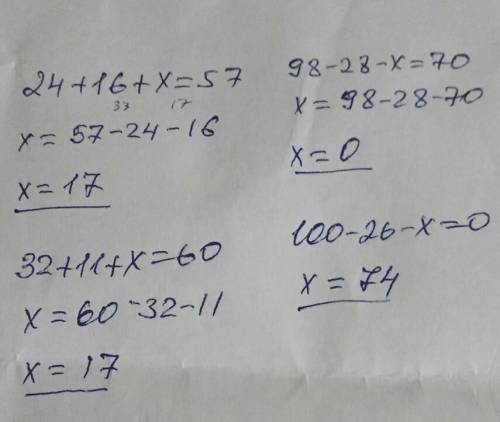 24+16+x=57
33 17
x=57-24-16
x=17
32+11+x=60
x=60-32-11
x=17
98-28-x=70
x=98-28-70
x=0
100-26-x=0
x=74